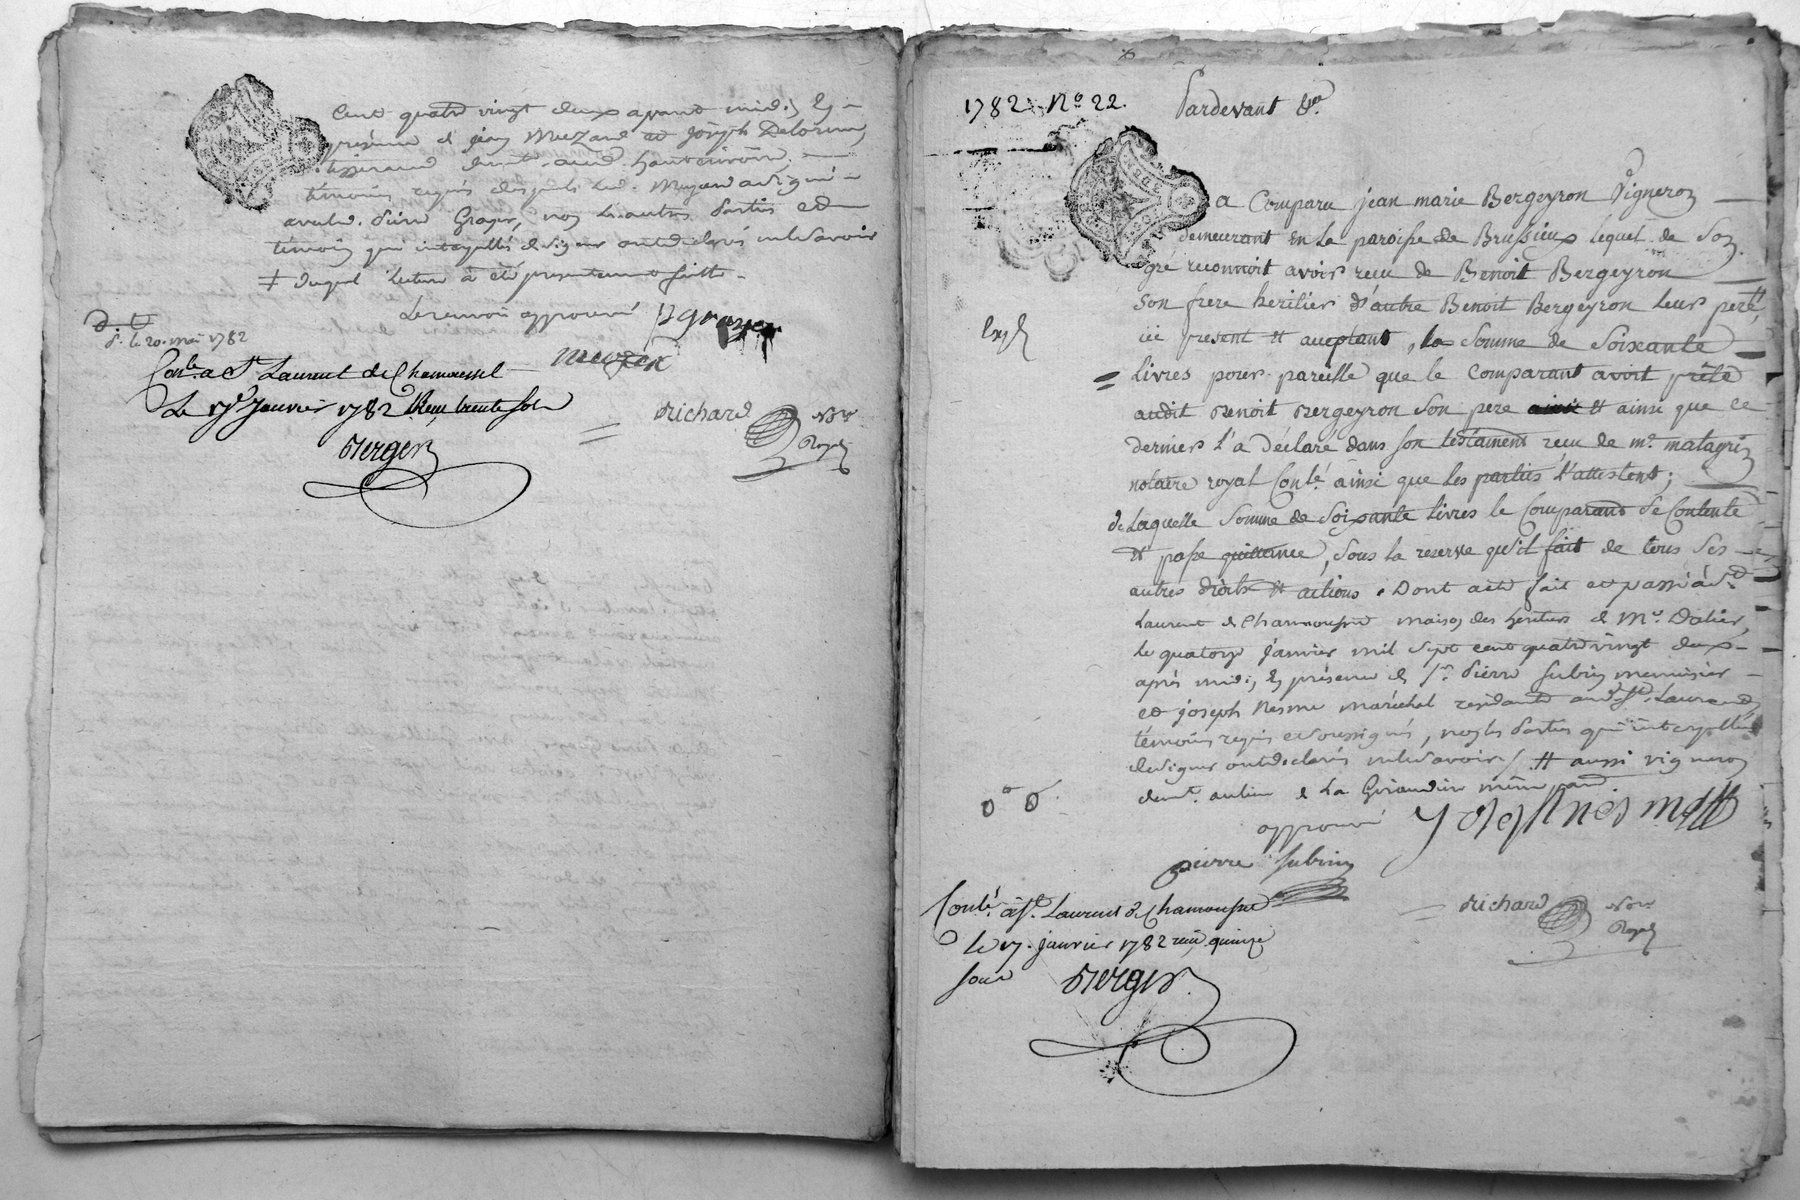 Cent quatre vingt deux avant midi, En
présence de jean Meuzard et Joseph Delorme,
tisserand
témoins requis desquels led. a signé
avec led. Pierre Grayer, non les autres Parties et
témoin qui interpellés de signer ont déclarés ne le savoir
duquel lecture a été présentement faitte
Le renvoi approuvé
pgrayer
D. t
d. le 20. mai 1782
meuzar
Conlé a St. Laurent de Chamousset
Le 17e Janvier 1782 Reçu trente sols
Berger
richard Nore
Royal
1782 No. 22. Pardevant &a.
a Comparu jean marie Bergeyron Vigneron
demeurant en la paroisse de Brussieux lequel de son
gré reconnoit avoir reçu de Benoit Bergeyron
son frere heritier d'autre Benoit Bergeyron leur pere, #
ici present et acceptant, la somme de soixante
Exp.
livres pour pareille que le comparant avoit prêté
audit Benoit Bergeyron son pere et ainsi que ce
dernier l'a déclaré dans son testament reçu de me. matagrin
notaire royal Conlé. ainsi que les parties l'attestent;
de laquelle somme de soixante livres le Comparant se Contente
et passe quittance, sous la reserve qu'il fait de tous ses
autres droits et actions. Dont acte fait et passé à St.
Laurent de Chamousset maison des heritiers de Mr. Dalier,
le quatorze janvier mil sept cent quatre vingt deux
après midi, En présence de Sr. Pierre Subrin menuisier
et joseph Nesme maréchal residants aud. St. Laurent,
témoins requis et soussignés, non les Parties qui interpellées
de signer ont déclarés ne le savoir / # aussi vigneron
demt. au lieu de La Giraudière même par.
approuvé joseph nesme
pierre subrin
Conlé. a St. Laurent de Chamousset
le 17. janvier 1782 reçu quinze
sous Berger
richard Nore
Royal